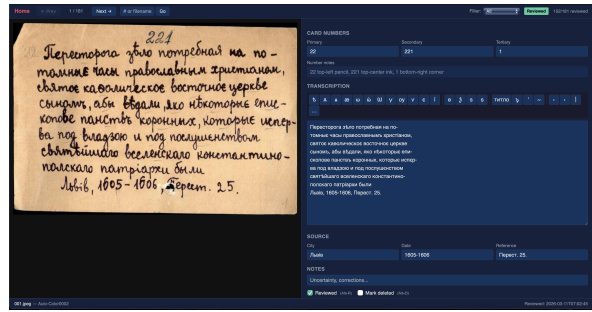 Home
← Prev
1 / 151
Next →
# or filename
Go
Filter:
All
Reviewed
152/181 reviewed
22
221
Пересторога зѣло потребная на по-
томные часы православным христианом,
святое каѳолическое восточное церкве
сыномъ, абы вѣдали, яко нѣкоторые епис-
копове панствъ коронных, которые испер-
ва под владзою и под послушенством
святѣйшаго вселенскаго константино-
полскаго патріархи были
Львів, 1605-1606, Перест. 25.
CARD NUMBERS
Primary
Secondary
Tertiary
22
221
1
Number notes
22 top-left pencil, 221 top-center ink, 1 bottom-right corner
TRANSCRIPTION
титло
Пересторога зѣло потребная на по-
томныє часы православнымъ христіаном,
святоє каѳолическоє восточноє церкве
сыномъ, абы вѣдали, яко нѣкоторыє епи-
скопове панствъ коронных, которыє испер-
ва под владзою и под послушенством
святѣйшаго вселенскаго константино-
полскаго патріархи были
Львів, 1605-1606, Перест. 25.
SOURCE
City
Date
Reference
Львів
1605-1606
Перест. 25.
NOTES
Uncertainty, corrections...
Reviewed (Alt+R)
Mark deleted (Alt+D)
001.jpeg — Auto-Color0002
Reviewed: 2026-03-11T07:02:45